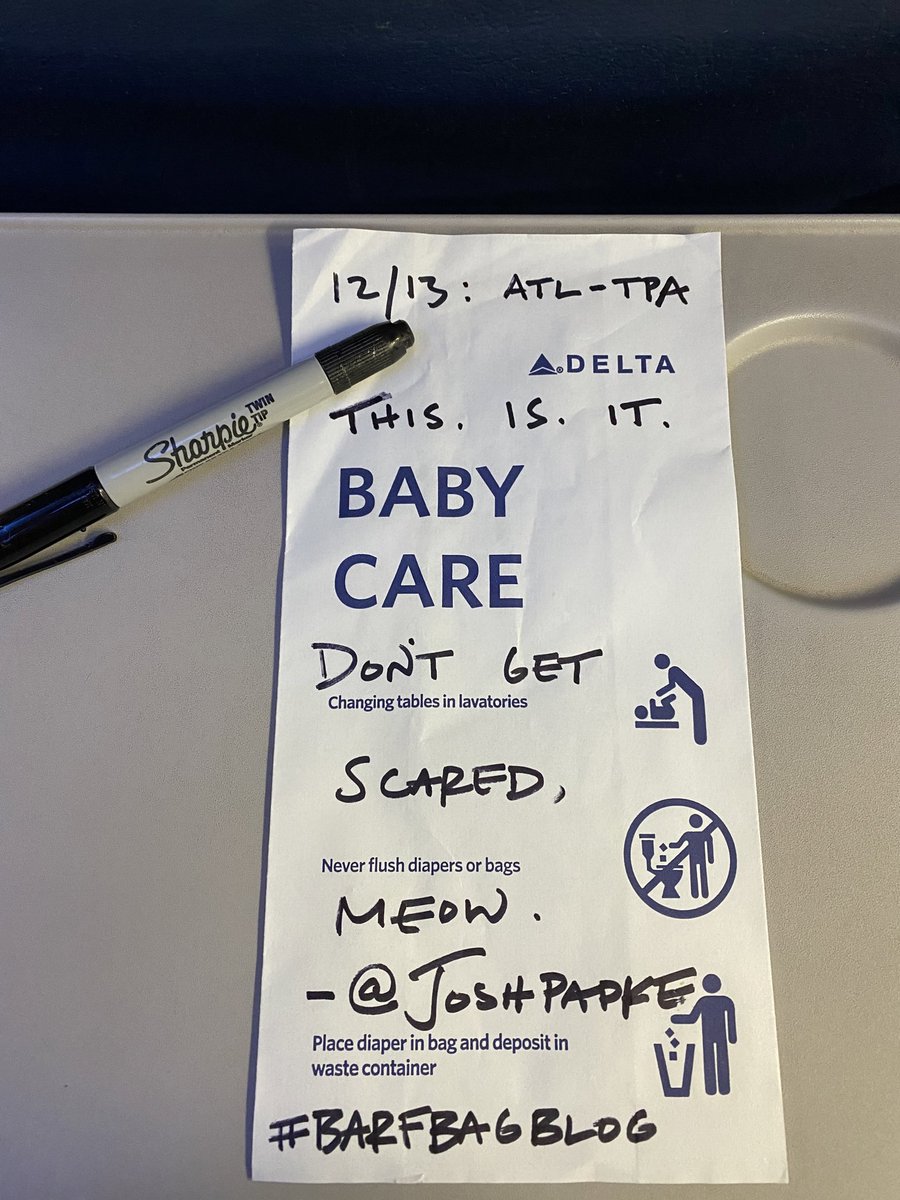 12/13: ATL-TPA
DELTA
THIS. IS. IT.
Sharpie TWIN TIP
Permanent Marker
BABY
CARE
DON'T GET
Changing tables in lavatories
SCARED,
Never flush diapers or bags
MEOW.
-@JOSHPAPKE
Place diaper in bag and deposit in
waste container
#BARFBAGBLOG